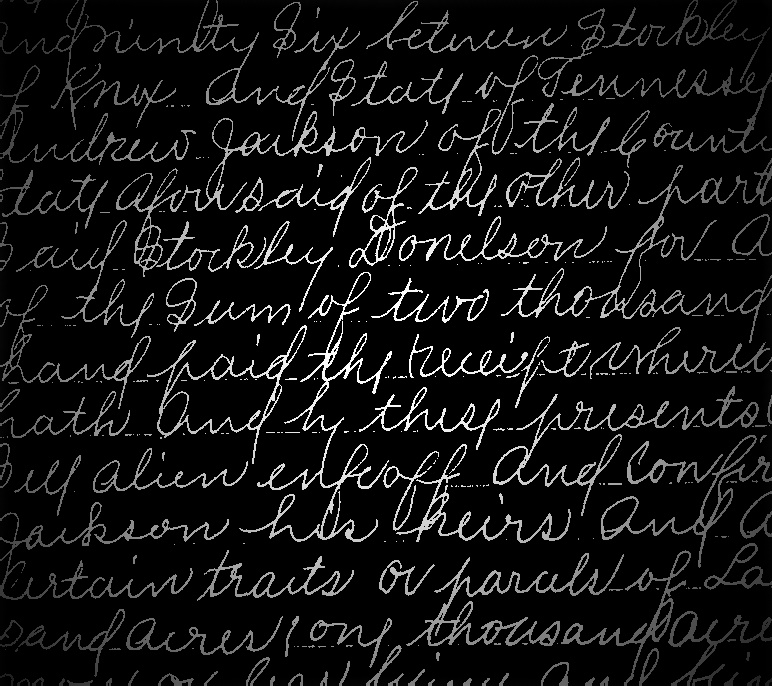 and ninety Six between Stockley
of Knox and State of Tennessee
Andrew Jackson of the Count
State aforesaid of the other part
Said Stockley Donelson for a
of the Sum of two thousand
hand paid the receipt where
hath and by these presents
Sell alien enfeoff and confir
Jackson his heirs and a
Certain tracts or parcels of La
sand acres one thousand acre
more or less being and bein